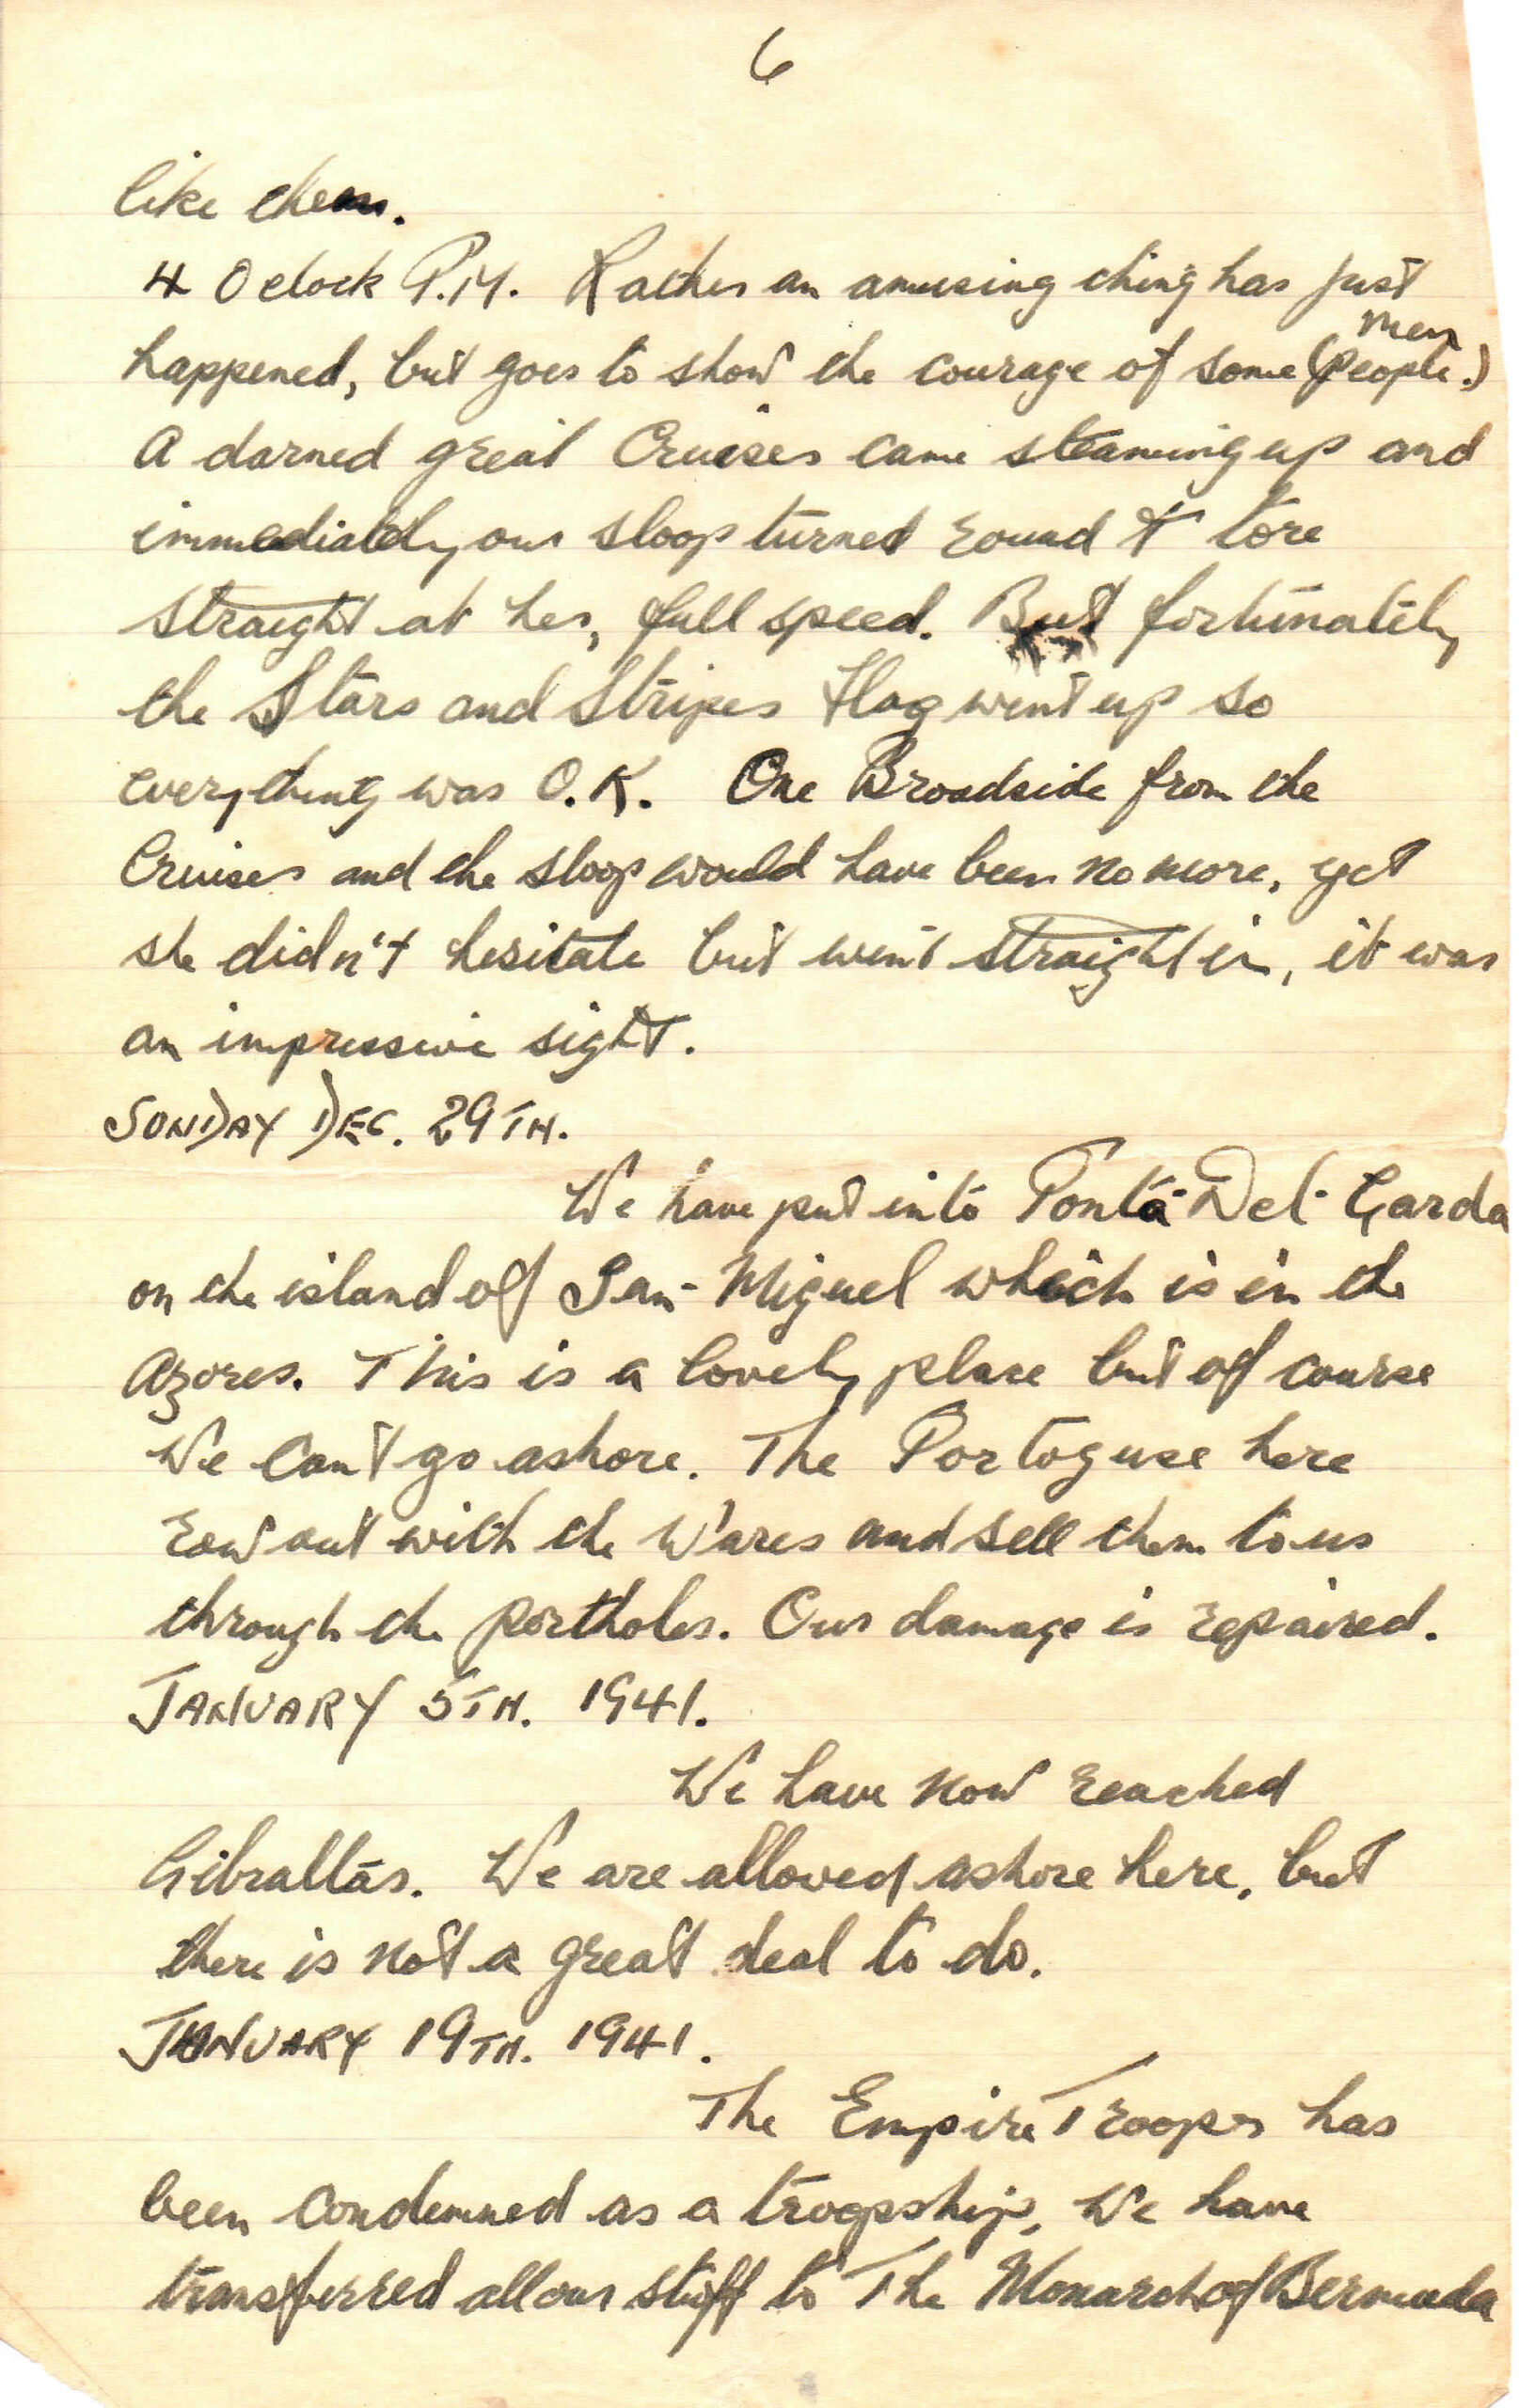 6
like them.
4 O clock P.M. Rather an amusing thing has just
men
happened, but goes to show the courage of some (people.)
A darned great Cruiser came steaming up and
immediately our sloop turned round & tore
straight at her, full speed. But fortunately
the Stars and Stripes Flag went up so
everything was O.K. One Broadside from the
Cruiser and the sloop would have been no more, yet
she didn't hesitate but went straight in, it was
an impressive sight.
SUNDAY DEC. 29TH.
We have put into Ponta-Del-Garda
on the island of San-Miguel which is in the
Azores. This is a lovely place but of course
We Can't go ashore. The Portoguse here
row out with the Wares and sell them to us
through the portholes. Our damage is repaired.
JANUARY 5TH. 1941.
We have now reached
Gibraltar. We are allowed ashore here, but
there is not a great deal to do.
JANUARY 19TH. 1941.
The Empire Trooper has
been Condemned as a troopship, We have
transferred all our stuff to The Monarch of Bermuda